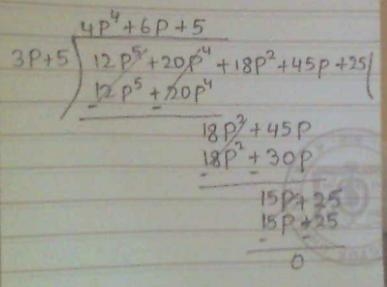 4p⁴+6p+5
3p+5) 12p⁵+20p⁴+18p²+45p+25(
12p⁵+20p⁴
18p²+45p
18p²+30p
15p+25
15p+25
0